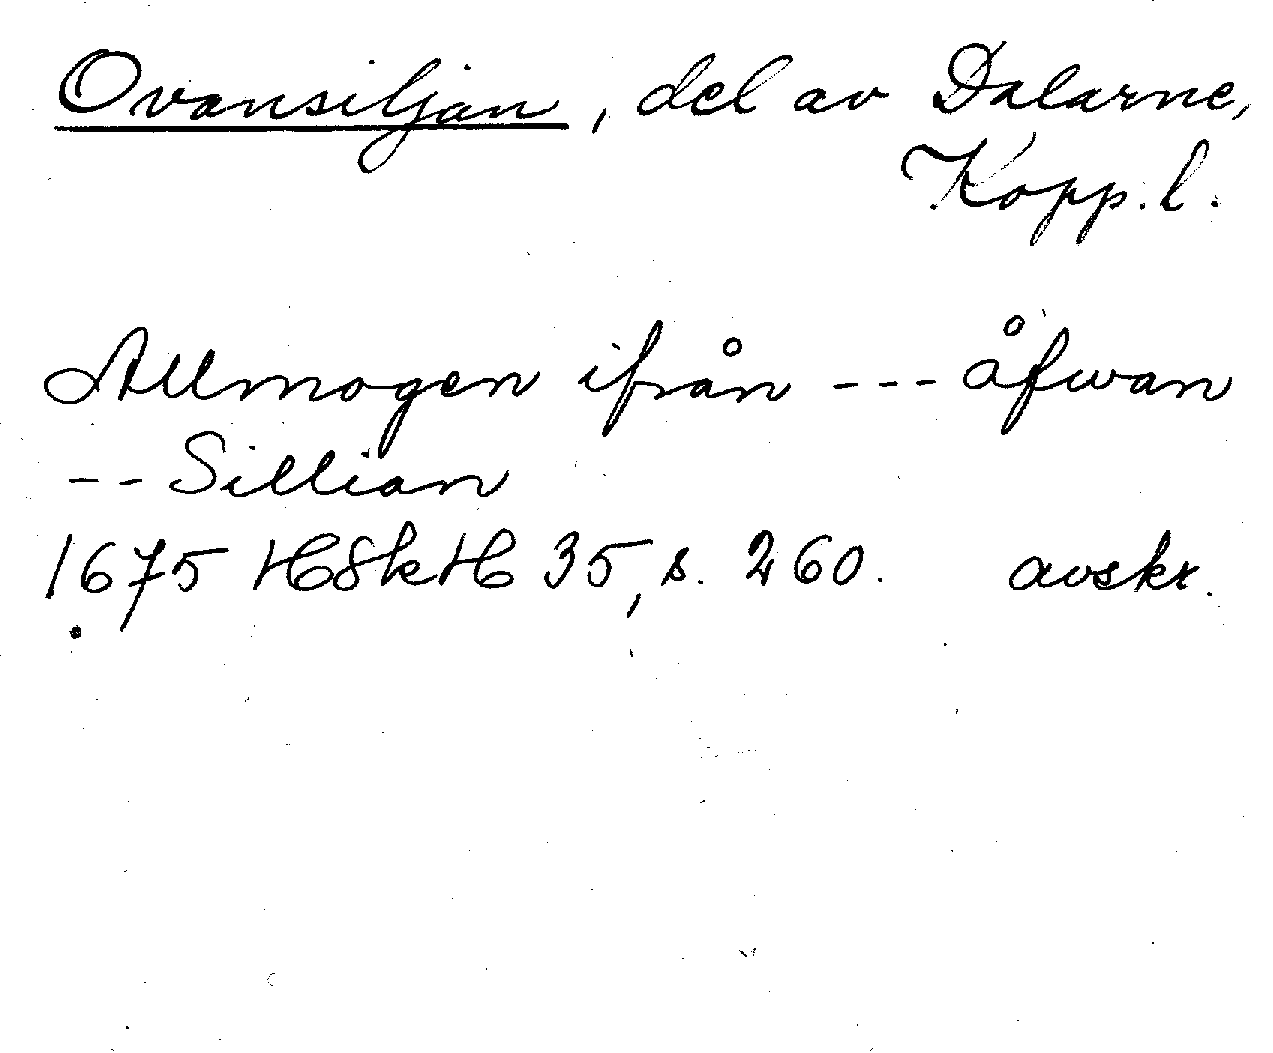 Ovansiljan, del av Dalarne,
Kopp. l.
Allmogen ifrån --- åfwan
-- Sillian
1675 HSkH 35, s. 260. avskr.